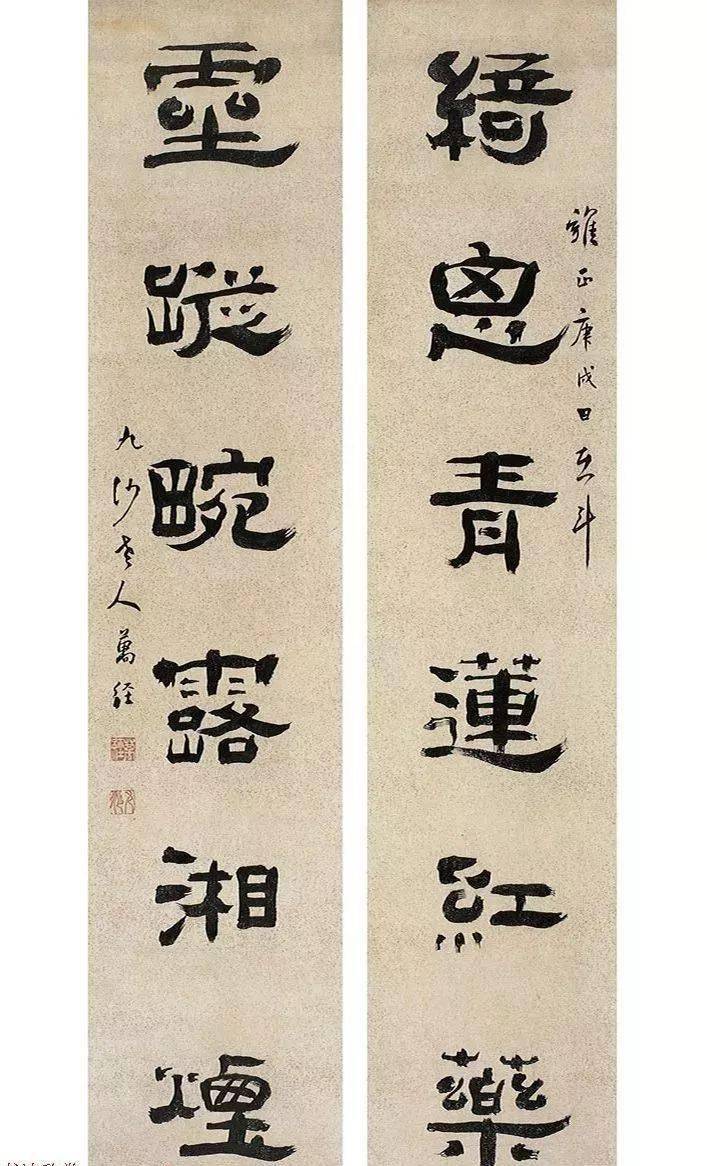 綺思青蓮紅藥
雍正庚戌日在斗
靈蹤畹露湘煙
九沙老人萬經